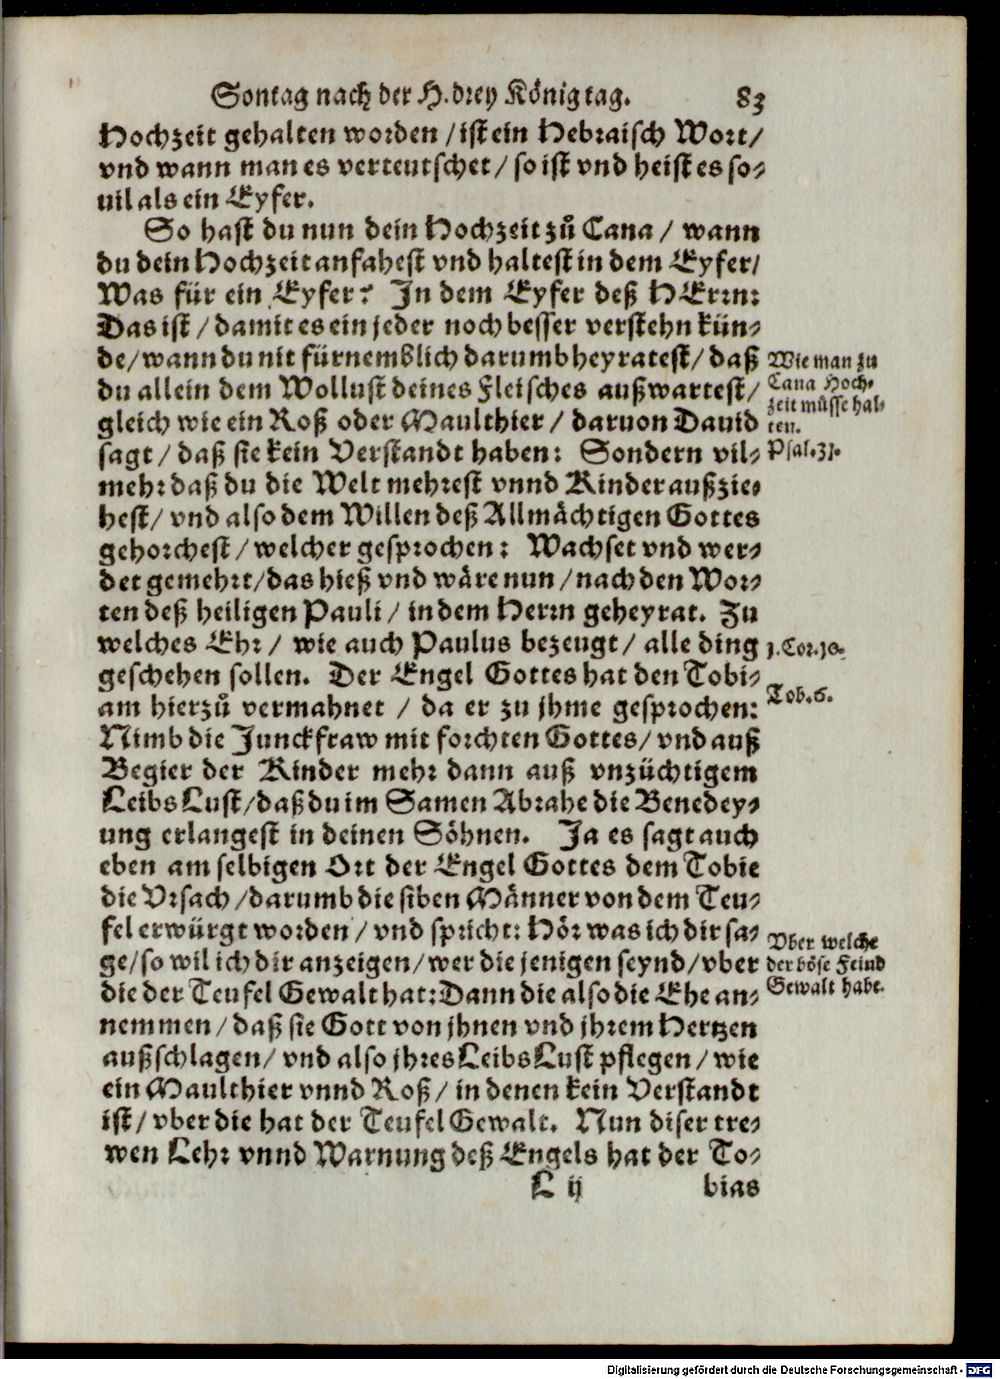 Sontag nach der H. drey König tag. 83
Hochzeit gehalten worden / ist ein Hebraisch Wort /
vnd wann man es verteutschet / so ist vnd heist es so-
uil als ein Eyfer.
So hast du nun dein Hochzeit zů Cana / wann
du dein Hochzeit anfahest vnd haltest in dem Eyfer /
Was für ein Eyfer? In dem Eyfer deß HErrn:
Das ist / damit es ein jeder noch besser verstehn kün-
de / wann du nit fürnemblich darumb heyratest / daß
du allein dem Wollust deines Fleisches außwartest /
gleich wie ein Roß oder Maulthier / daruon Dauid
sagt / daß sie kein Verstandt haben: Sondern vil-
mehr daß du die Welt mehrest vnnd Kinder außzie-
hest / vnd also dem Willen deß Allmächtigen Gottes
gehorchest / welcher gesprochen: Wachset vnd wer-
det gemehrt / das hieß vnd wäre nun / nach den Wor-
ten deß heiligen Pauli / in dem Herrn geheyrat. Zu
welches Ehr / wie auch Paulus bezeugt / alle ding
geschehen sollen. Der Engel Gottes hat den Tobi-
am hierzů vermahnet / da er zu jhme gesprochen:
Nimb die Junckfraw mit forchten Gottes / vnd auß
Begier der Kinder mehr dann auß vnzüchtigem
Leibs Lust / daß du im Samen Abrahe die Benedey-
ung erlangest in deinen Söhnen. Ja es sagt auch
eben am selbigen Ort der Engel Gottes dem Tobie
die Vrsach / darumb die siben Männer von dem Teu-
fel erwürgt worden / vnd spricht: Hör was ich dir sa-
ge / so wil ich dir anzeigen / wer die jenigen seynd / vber
die der Teufel Gewalt hat: Dann die also die Ehe an-
nemmen / daß sie Gott von jhnen vnd jhrem Hertzen
außschlagen / vnd also jhres Leibs Lust pflegen / wie
ein Maulthier vnnd Roß / in denen kein Verstandt
ist / vber die hat der Teufel Gewalt. Nun diser tre-
wen Lehr vnnd Warnung deß Engels hat der To-
L ij bias
Wie man zu
Cana Hoch-
zeit müsse hal-
ten.
Psal. 31.
1. Cor. 10.
Tob. 6.
Vber welche
der böse Feind
Gewalt habe.
Digitalisierung gefördert durch die Deutsche Forschungsgemeinschaft - DFG